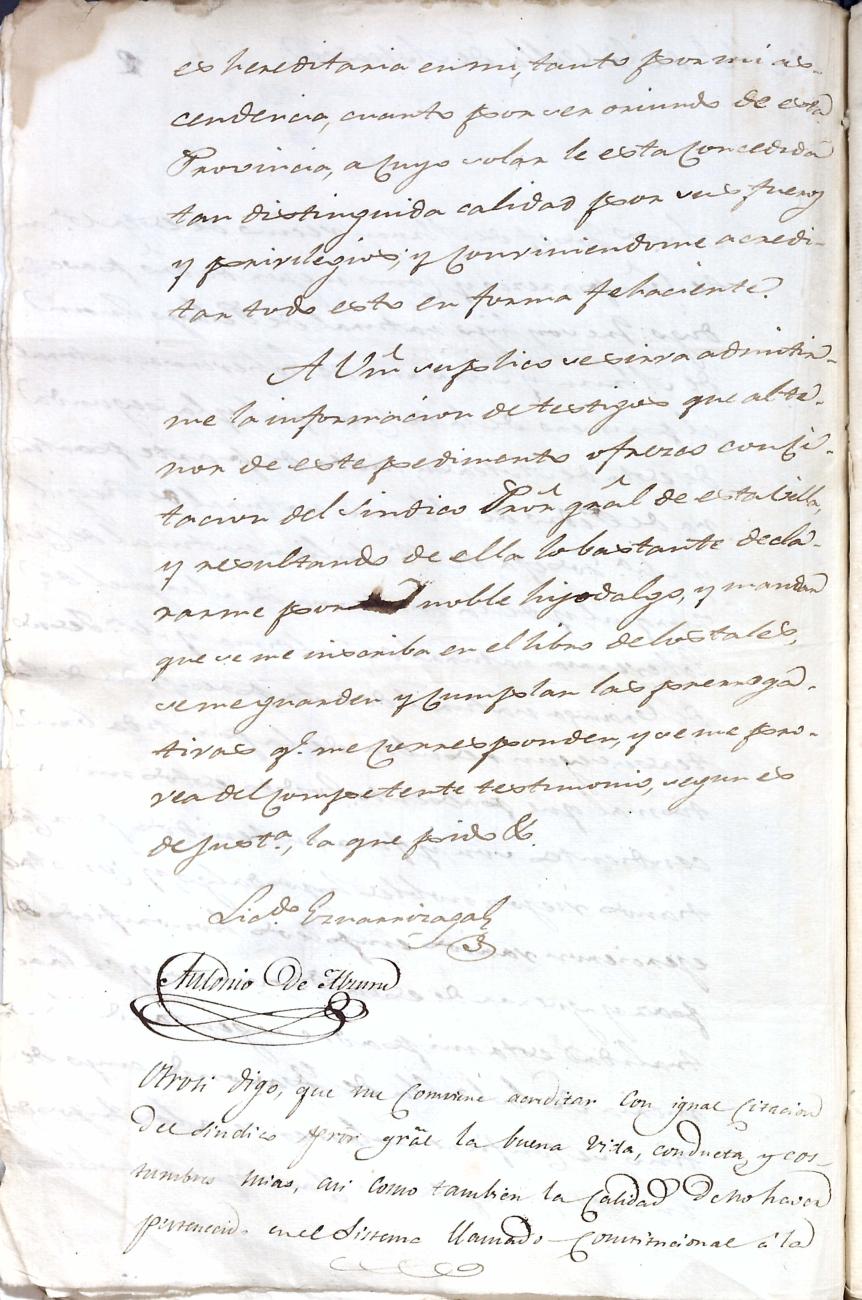 es hereditaria en mi, tanto por mi as-
cendencia, cuanto por ser oriundo de esta
Provincia, a cuyo solar le esta concedida
tan distinguida calidad por sus fueros
y privilegios; y conviniendome acredi-
tar todo esto en forma fehaciente.
A Vm suplico se sirva admitir-
me la informacion de testigos que al te-
nor de este pedimento ofrezco con ci-
tacion del Sindico Pror gral de esta Villa,
y resultando de ella lo bastante decla-
rarme por noble hijodalgo, y mandar
que se me inscriba en el libro de los tales,
se me guarden y cumplan las prerroga-
tivas q.e me corresponden, y se me pro-
vea del competente testimonio, segun es
de just.a, la que pido &.
Licdo
Antonio De
Otrosi digo, que me combiene acreditar con igual citacion
del sindico pror gral la buena vida, conducta, y cos-
tumbres mias, asi como tambien la calidad de no haver
pertenecido en el sistema llamado Constitucional á la